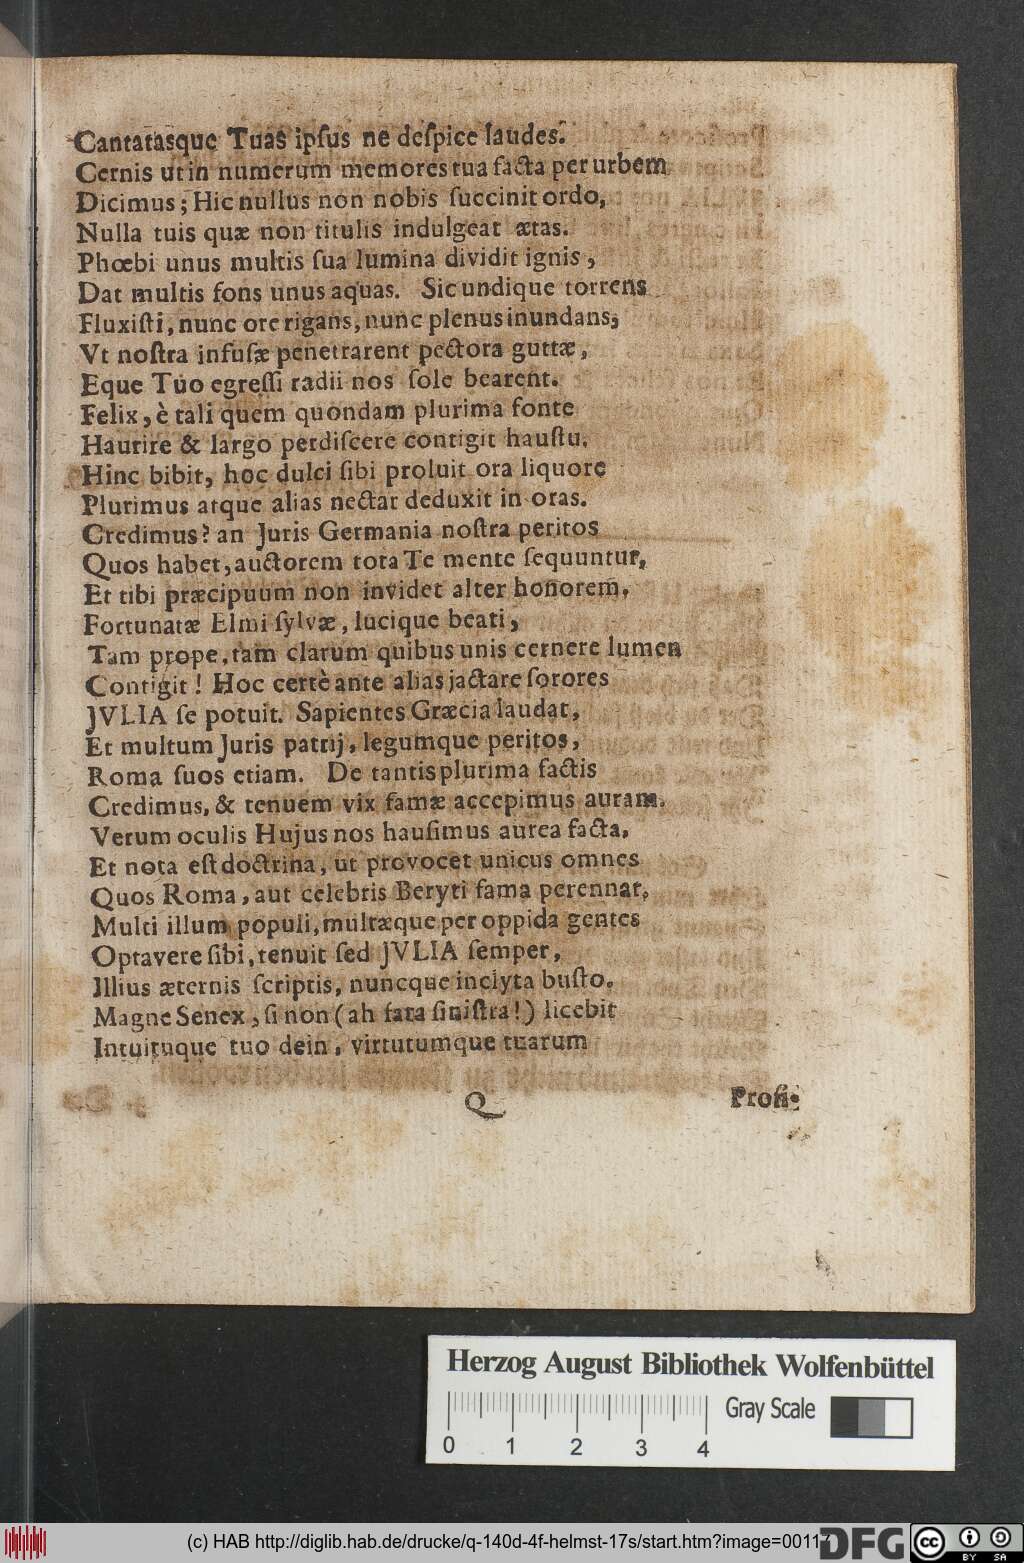 Cantatasque Tuas ipſus ne deſpice laudes.
Cernis ut in numerum memores tua facta per urbem
Dicimus; Hic nullus non nobis ſuccinit ordo,
Nulla tuis quæ non titulis indulgeat ætas.
Phœbi unus multis ſua lumina dividit ignis,
Dat multis fons unus aquas. Sic undique torrens
Fluxiſti, nunc ore rigans, nunc plenus inundans;
Vt noſtra infuſæ penetrarent pectora guttæ,
Eque Tuo egreſſi radii nos ſole bearent.
Felix, è tali quem quondam plurima fonte
Haurire & largo perdiſcere contigit hauſtu.
Hinc bibit, hoc dulci ſibi proluit ora liquore
Plurimus atque alias nectar deduxit in oras.
Credimus? an Juris Germania noſtra peritos
Quos habet, auctorem tota Te mente ſequuntur,
Et tibi præcipuum non invidet alter honorem.
Fortunatæ Elmi ſylvæ, lucique beati,
Tam prope, tam clarum quibus unis cernere lumen
Contigit! Hoc certè ante alias jactare ſorores
JVLIA ſe potuit. Sapientes Græcia laudat,
Et multum Juris patrij, legumque peritos,
Roma ſuos etiam. De tantis plurima factis
Credimus, & tenuem vix famæ accepimus auram.
Verum oculis Hujus nos hauſimus aurea facta,
Et nota eſt doctrina, ut provocet unicus omnes
Quos Roma, aut celebris Beryti fama perennat.
Multi illum populi, multæque per oppida gentes
Optavere ſibi, tenuit ſed JVLIA ſemper,
Illius æternis ſcriptis, nuncque inclyta buſto.
Magne Senex, ſi non (ah fata ſiniſtra!) licebit
Intuituque tuo dein, virtutumque tuarum
Q
Profi-
Herzog August Bibliothek Wolfenbüttel
0 1 2 3 4
Gray Scale
(c) HAB http://diglib.hab.de/drucke/q-140d-4f-helmst-17s/start.htm?image=00117
DFG
cc BY SA